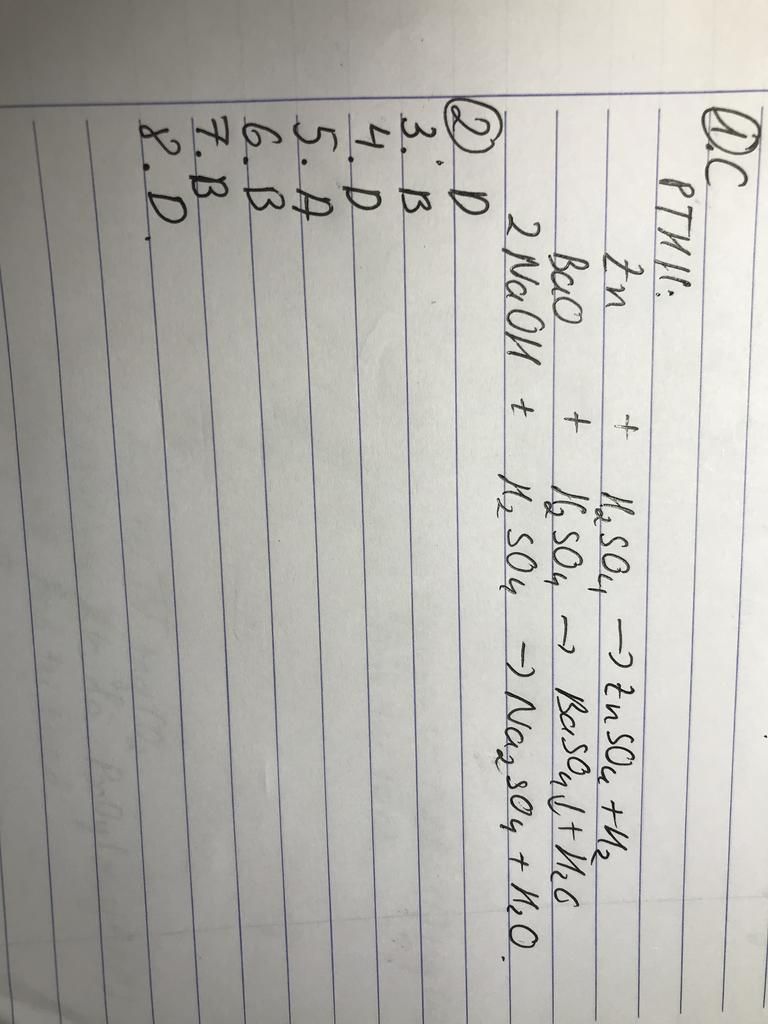 1.C
PTHH:
Zn + H₂SO₄ → ZnSO₄ + H₂
BaO + H₂SO₄ → BaSO₄↓ + H₂O
2NaOH + H₂SO₄ → Na₂SO₄ + H₂O.
2) D
3. B
4. D
5. A
6. B
7. B
8. D.